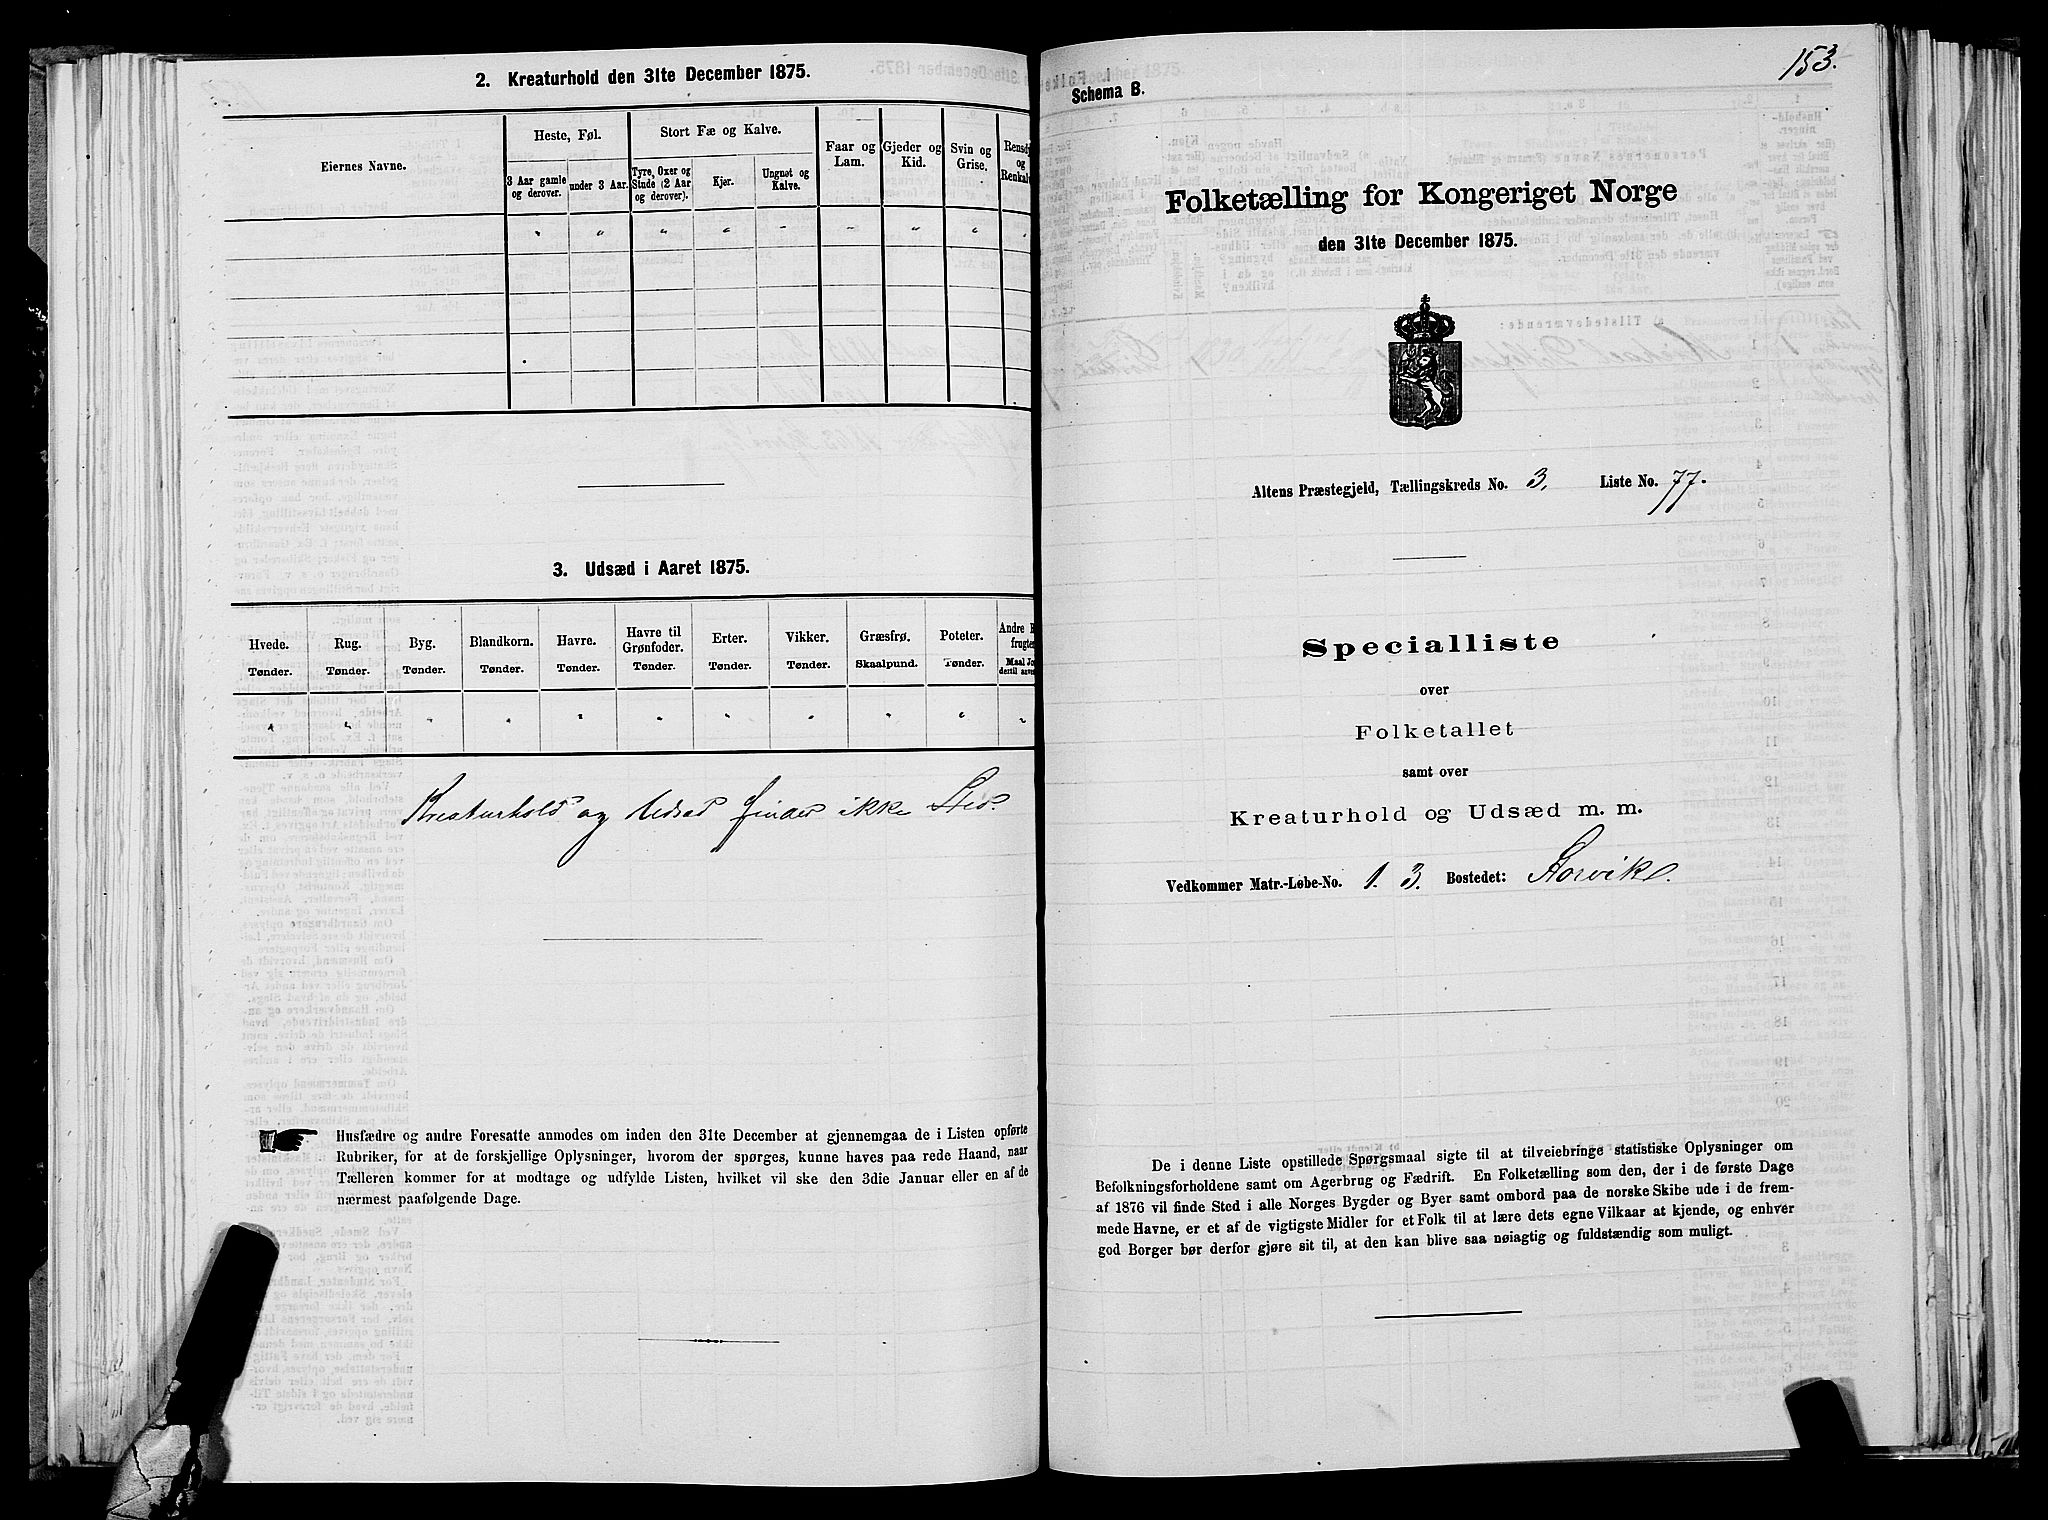 2. Kreaturhold den 31te December 1875.
Eiernes Navne.
Heste, Føl.
Stort Fæ og Kalve.
Faar og Lam.
Gjeder og Kid.
Svin og Grise.
Rensdy
og
Renkalv
3 Aar gamle og derover.
under 3 Aar.
Tyre, Oxer og Stude (2 Aar og derover).
Kjer.
Ungnøt og Kalve.
" " " " " " " " "
3. Udsæd i Aaret 1875.
Hvede. Rug. Byg. Blandkorn. Havre. Havre til Grønfoder. Erter. Vikker. Græsfrø. Poteter. Andre
frugter
Tønder. Tønder. Tønder. Tønder. Tønder. Tønder. Tønder. Tønder. Skaalpund. Tønder. Maal Jo
dertil
" " " " " " " " " " "
Kreaturhold og Udsæd finder ikke Sted.
Husfædre og andre Foresatte anmodes om inden den 31te December at gjennemgaa de i Listen opførte
Rubriker, for at de forskjellige Oplysninger, hvorom der spørges, kunne haves paa rede Haand, naar
Tælleren kommer for at modtage og udfylde Listen, hvilket vil ske den 3die Januar eller en af de
nærmest paafølgende Dage.
153.
Schema B.
Folketælling for Kongeriget Norge
den 31te December 1875.
Altens Præstegjeld, Tællingskreds No. 3. Liste No. 77.
Specialliste
over
Folketallet
samt over
Kreaturhold og Udsæd m. m.
Vedkommer Matr.-Løbe-No. 1. 3. Bostedet: Storvik.
De i denne Liste opstillede Spørgsmaal sigte til at tilveiebringe statistiske Oplysninger om
Befolkningsforholdene samt om Agerbrug og Fædrift. En Folketælling som den, der i de første Dage
af 1876 vil finde Sted i alle Norges Bygder og Byer samt ombord paa de norske Skibe ude i de frem-
mede Havne, er et af de vigtigste Midler for et Folk til at lære dets egne Vilkaar at kjende, og enhver
god Borger bør derfor gjøre sit til, at den kan blive saa nøiagtig og fuldstændig som muligt.